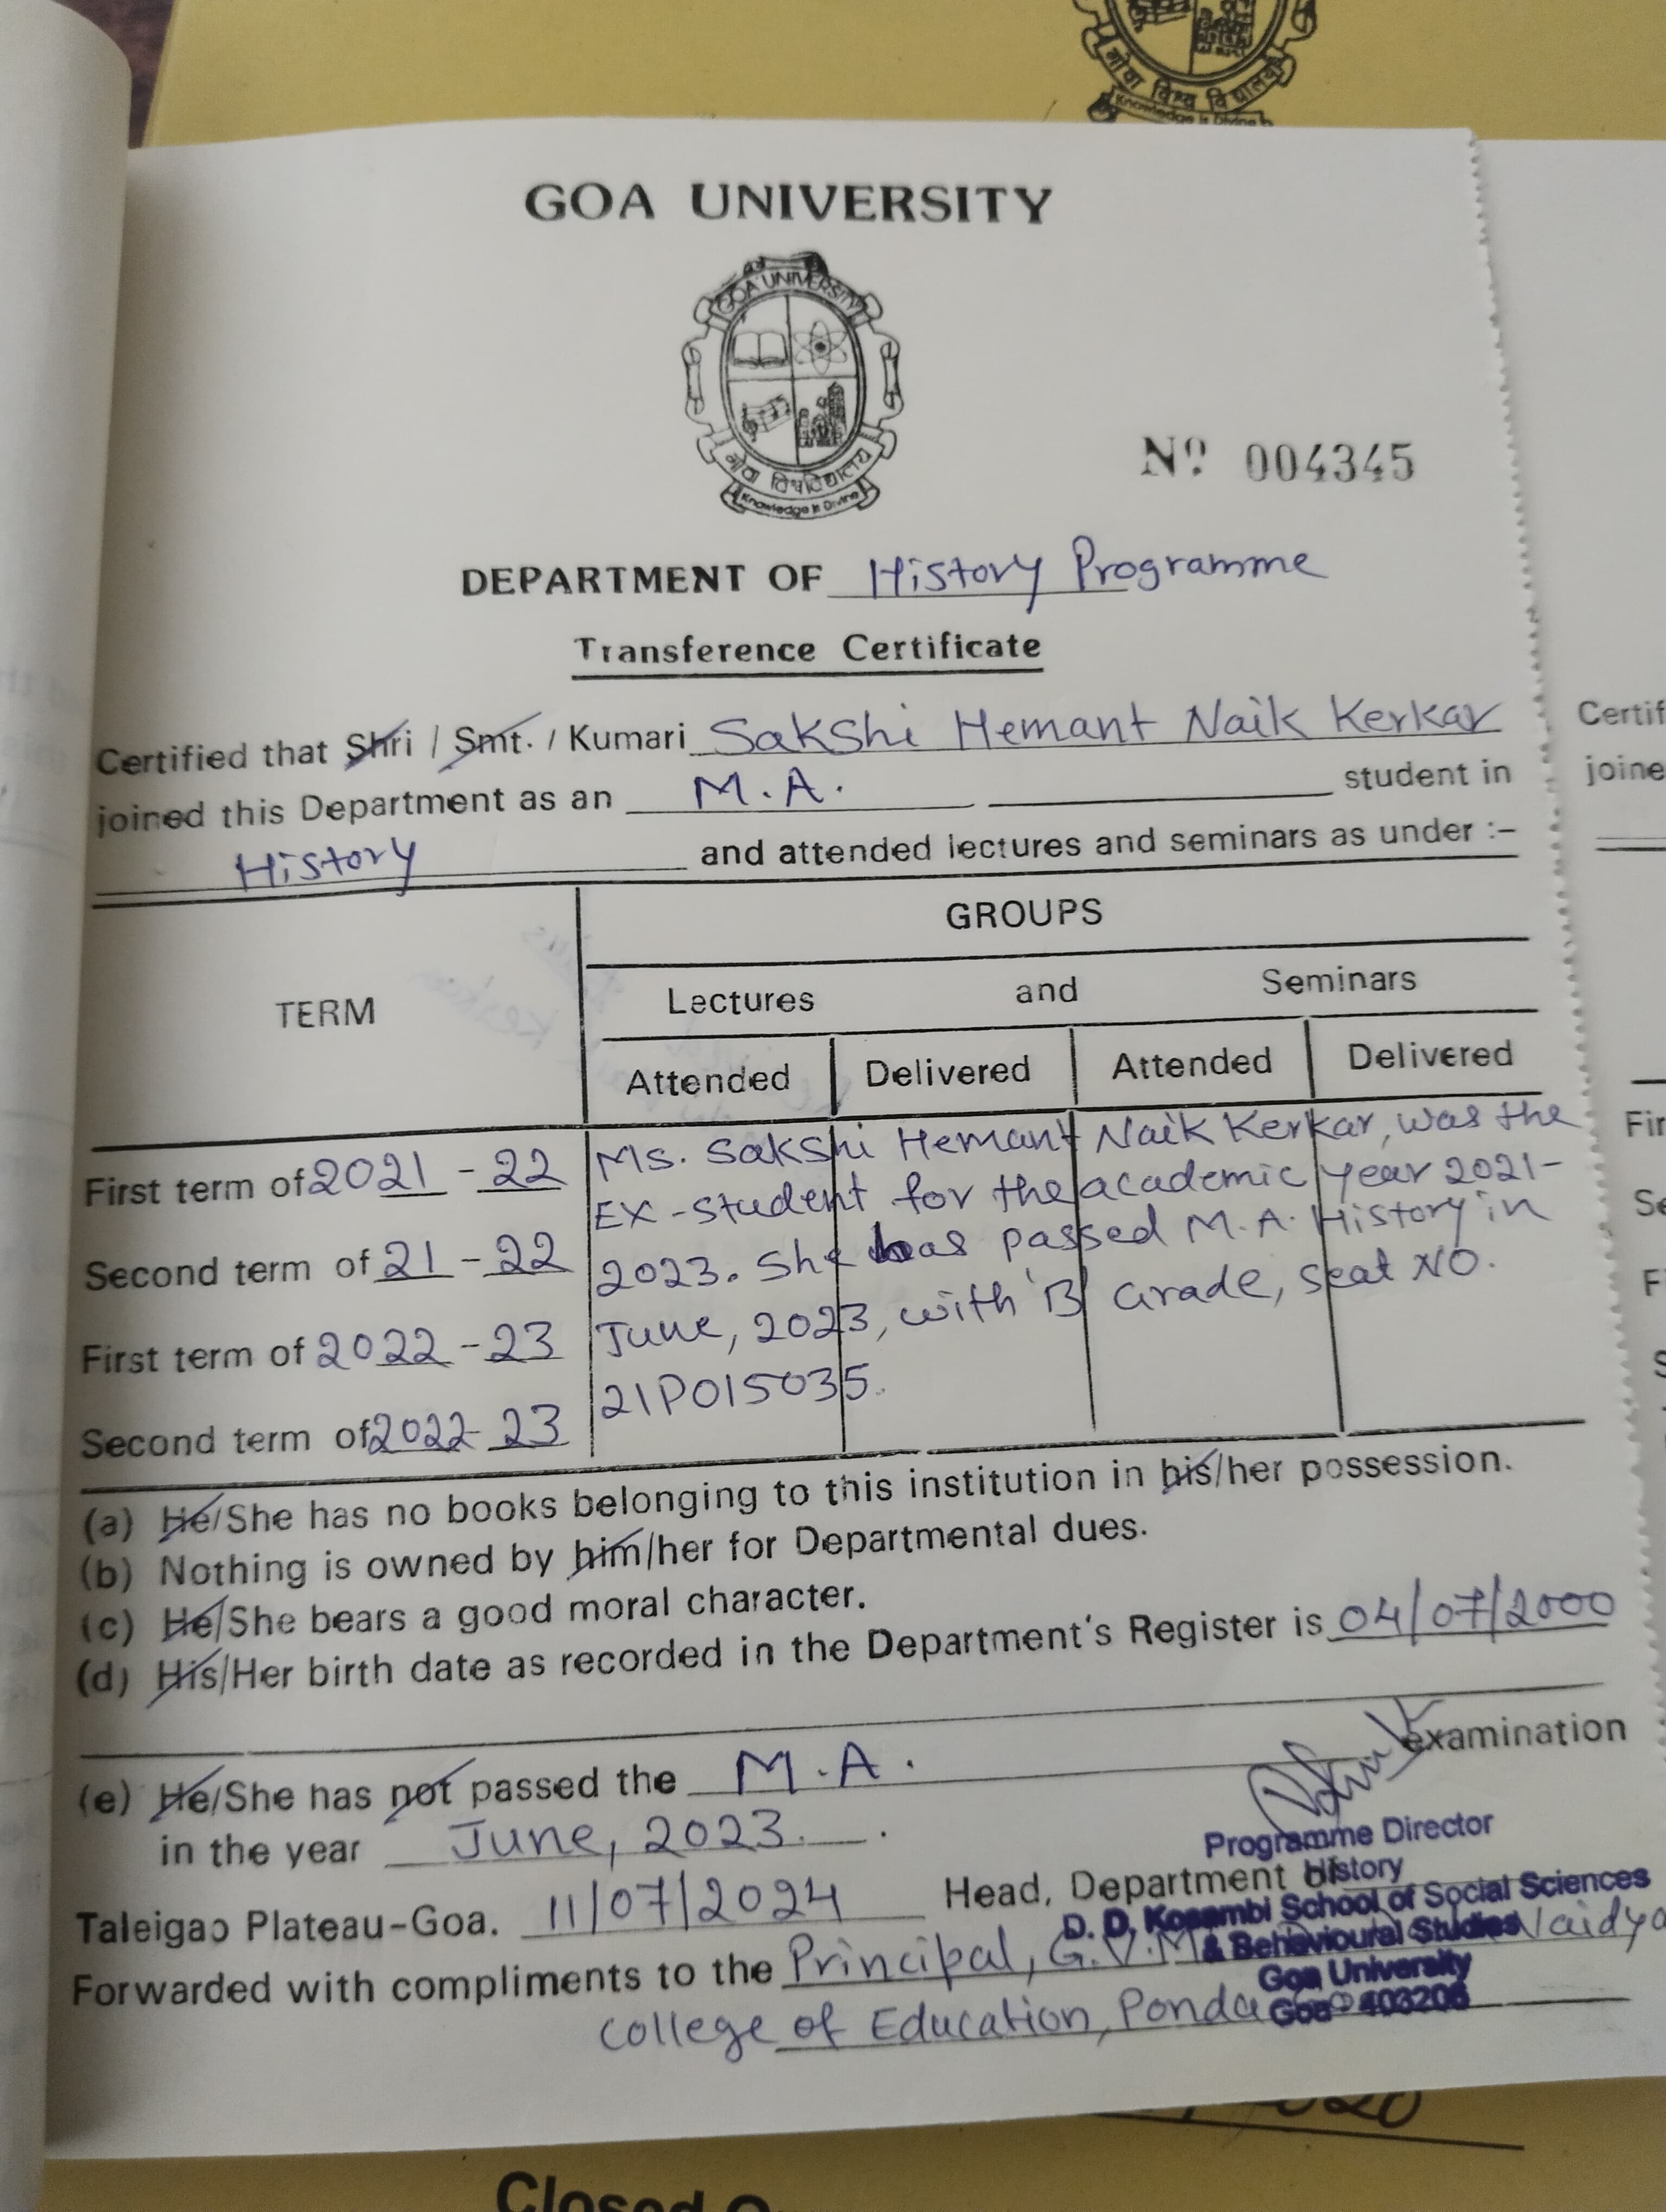 गोवा विश्व विद्यालय
Knowledge is Divine
GOA UNIVERSITY
GOA UNIVERSITY
गोवा विश्वविद्यालय
Knowledge is Divine
Nº 004345
DEPARTMENT OF History Programme
Transference Certificate
Certified that Shri / Smt. / Kumari Sakshi Hemant Naik Kerkar
joined this Department as an M.A. student in
History and attended lectures and seminars as under :–
GROUPS
TERM
Lectures and Seminars
Attended Delivered Attended Delivered
First term of 2021 - 22
Second term of 21 - 22
First term of 2022 - 23
Second term of 2022 - 23
Ms. Sakshi Hemant Naik Kerkar, was the
EX-student for the academic year 2021-
2023. She has passed M.A. History in
June, 2023, with 'B' Grade, seat NO.
21P015035.
(a) He/She has no books belonging to this institution in his/her possession.
(b) Nothing is owned by him/her for Departmental dues.
(c) He/She bears a good moral character.
(d) His/Her birth date as recorded in the Department's Register is 04/07/2000
(e) He/She has not passed the M.A. examination
in the year June, 2023.
Programme Director
History
D. D. Kosambi School of Social Sciences
& Behavioural Studies
Goa University
Goa - 403206
Taleigao Plateau-Goa. 11/07/2024 Head, Department of
Forwarded with compliments to the Principal, G.V.M Vaidya
College of Education, Ponda
Certif
joine
Fir
Se
F
S
Closed